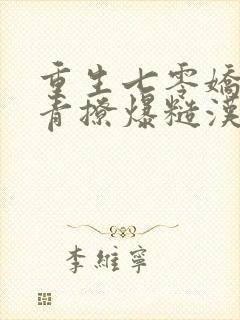 重生七零嬌
青撩爆糙漢
李維寧